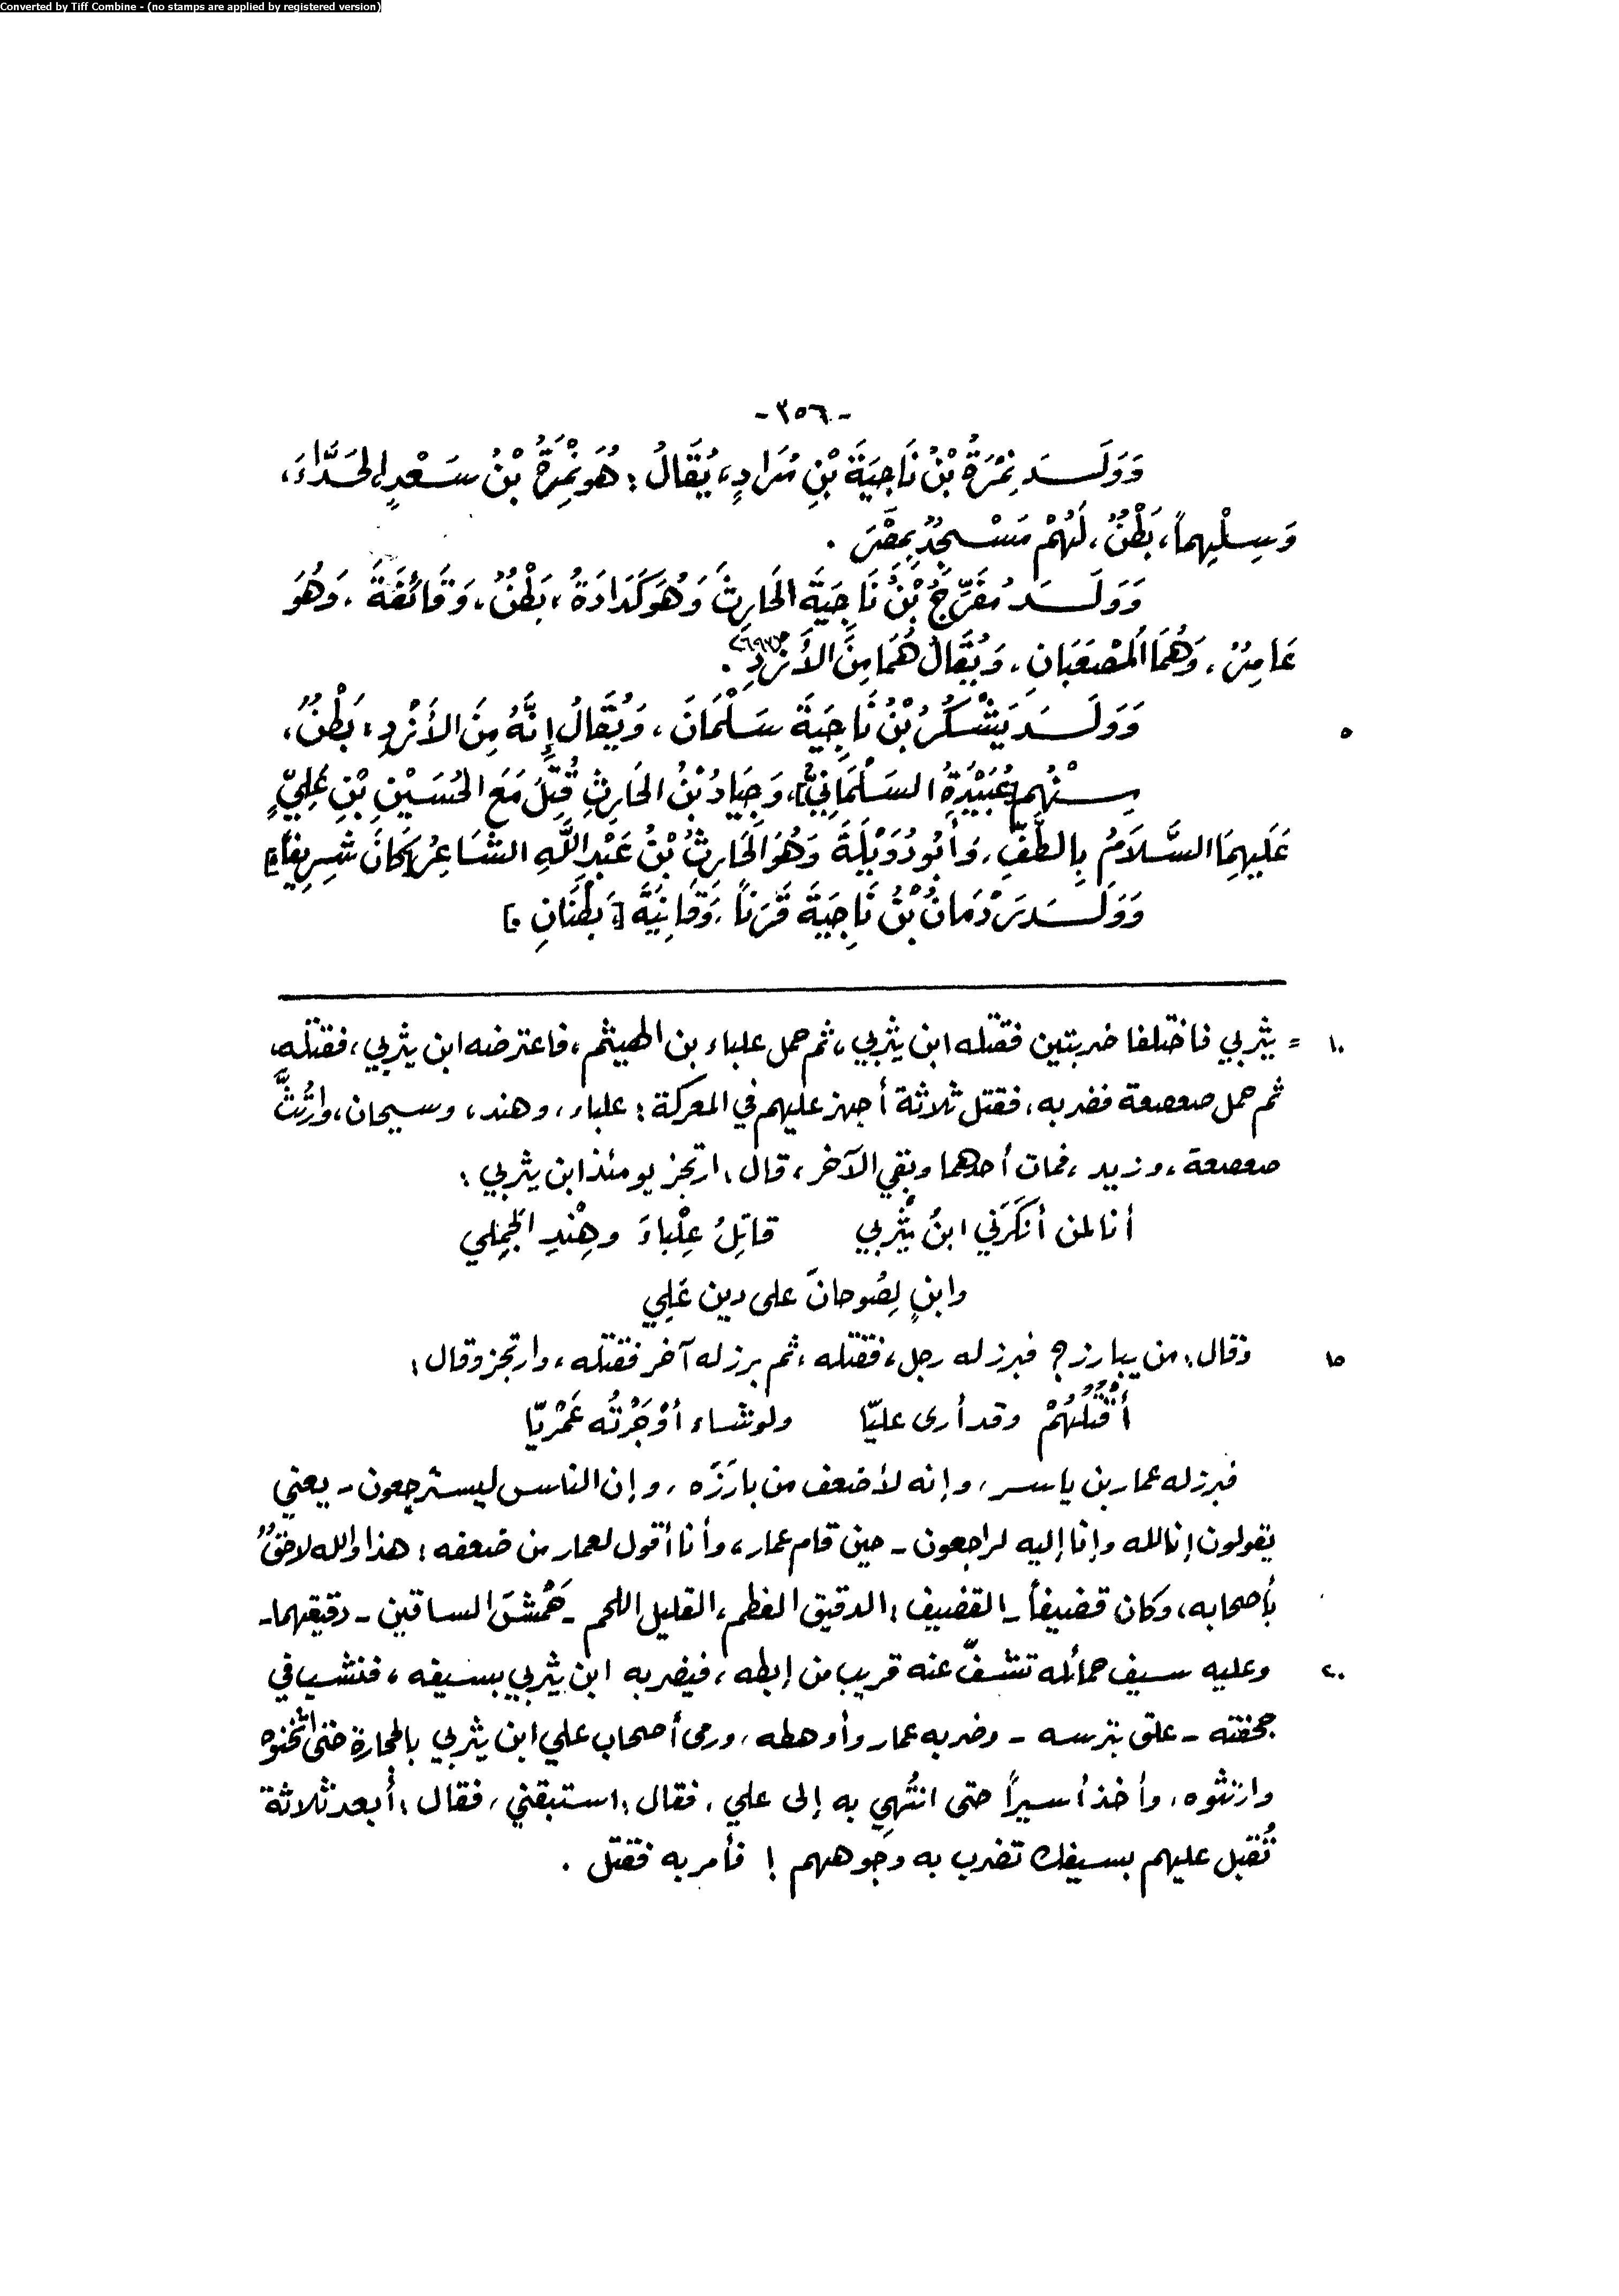 Converted by Tiff Combine - (no stamps are applied by registered version)
-٣٥٦-
وَوَلَـــدَ نِمْرَةُ بْنُ نَاجِيَةَ بْنِ مُرَادٍ، يُقَالُ : هُوَ نِمْرَةُ بْنُ سَعْدٍ، الحَدَّاءَ،
وَسِلْهِماً، بَطْنٌ، لَهُمْ مَسْجِدٌ بِمِصْرَ .
وَوَلَـــدَ مُفَرِّجُ بْنُ نَاجِيَةَ الحَارِثَ وَهُوَ كَدَادَةُ، بَطْنٌ، وَقَائِفَةَ، وَهُوَ
عَامِرٌ، وَهُمَا المُصْعَبَانِ، وَيُقَالُ هُمَا مِنَ الأَزْدِ .
٥ وَوَلَـــدَ يَشْكُرُ بْنُ نَاجِيَةَ سَلْمَانَ، وَيُقَالُ إِنَّهُ مِنَ الأَزْدِ، بَطْنٌ،
مِنْهُم [عُبَيْدَةُ السَلْمَانِيُّ]، وَجِيَادُ بْنُ الحَارِثِ قُتِلَ مَعَ الحُسَيْنِ بْنِ عَلِيٍّ
عَلَيهِمَا السَّلَامُ بِالطَّفِّ، وَأَبُو دُوَيْلَةَ وَهُوَ الحَارِثُ بْنُ عَبْدِ اللَّهِ الشَاعِرُ [كَانَ شَرِيفاً]
وَوَلَـــدَ رَدْمَانُ بْنُ نَاجِيَةَ قَرَناً، وَقَانِيَةَ [، بَطْنَانِ .]
١٠ = يثربي فاختلفا ضربتين فقتله ابن يثربي، ثم حمل علباء بن الهيثم، فاعترضه ابن يثربي، فقتله،
ثم حمل صعصعة فضربه، فقتل ثلاثة أجهز عليهم في المعركة : علباء، وهند، وسيحان، وارتُثَّ
صعصعة، وزيد، فمات أحدهما وبقي الآخر، قال : ارتجز يومئذ ابن يثربي :
أنا لمن أنكَرَني ابنُ يَثْرِبي قاتِلُ عِلْباءَ وهِنْدِ الجَمِلي
وابنٍ لِصُوحانَ على دين عَلِي
١٥ وقال : من يبارز ؟ فبرز له رجل، فقتله، ثم برز له آخر فقتله، وارتجز وقال :
أقْتُلُهُمْ وقد أرى عليّا ولو نشاء أوْجَرْتُه عَمْرِيّا
فبرز له عمار بن ياسر، وإنه لأضعف من بارَزَه، وإن الناس ليسترجعون - يعني
يقولون إنا لله وإنا إليه لراجعون - حين قام عمار، وأنا أقول لعمار من ضعفه : هذا والله لاحقٌ
بأصحابه، وكان قضيفاً - القضيف : الدقيق العظم، القليل اللحم - حَمْشَ الساقين - دقيقهما -
٢٠ وعليه سيف حمائله تشفّ عنه قريب من إبطه، فيضربه ابن يثربي بسيفه، فنشب في
جحفته - علق بترسه - وضربه عمار وأوهطه، ورمى أصحاب علي ابن يثربي بالحجارة حتى أثخنوه
وارتثوه، وأخذ أسيراً حتى انتُهي به إلى علي، فقال : استبقني، فقال : أبعد ثلاثة
تُقبل عليهم بسيفك تضرب به وجوههم ! فأمر به فقتل .